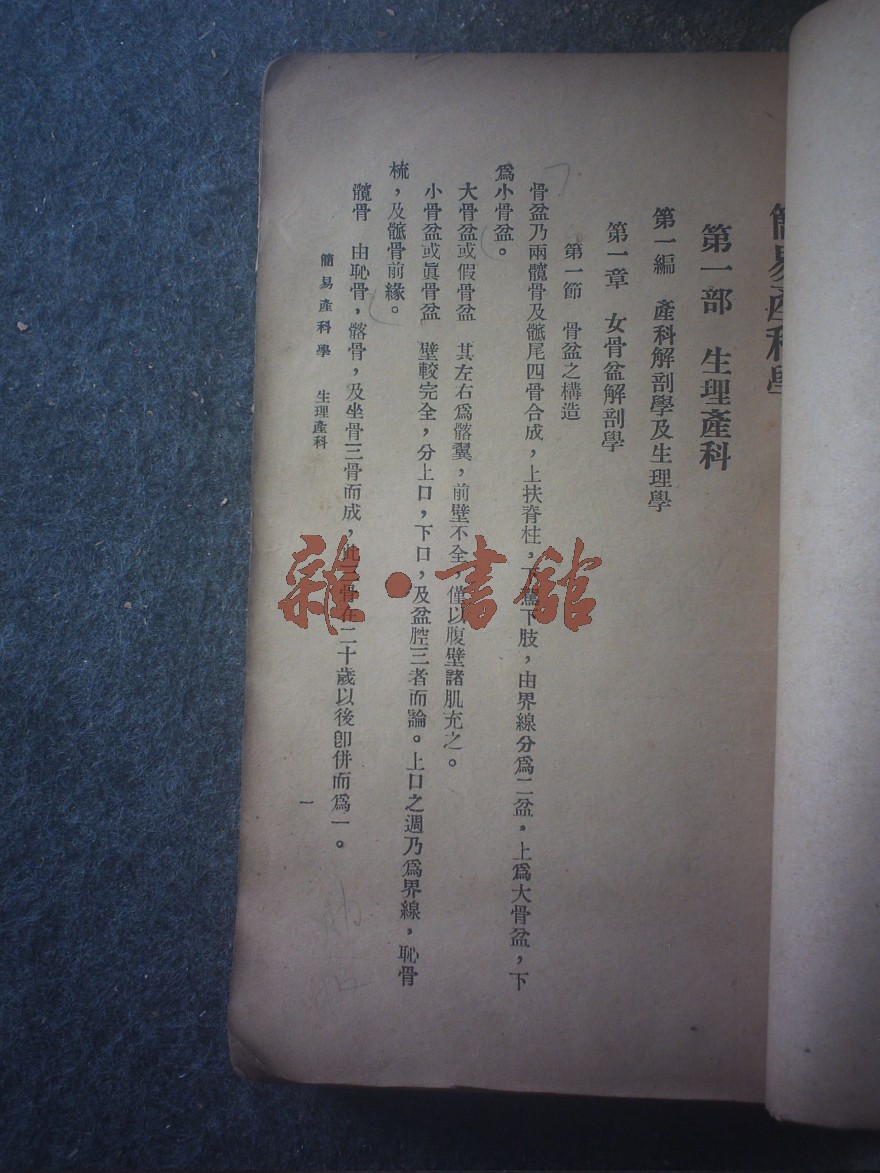 簡易產科學
第一部　生理產科
第一編　產科解剖學及生理學
第一章　女骨盆解剖學
第一節　骨盆之構造
骨盆乃兩髖骨及骶尾四骨合成，上扶脊柱，下駕下肢，由界線分爲二盆。上爲大骨盆，下
爲小骨盆。
大骨盆或假骨盆　其左右爲髂翼，前壁不全，僅以腹壁諸肌充之。
小骨盆或眞骨盆　壁較完全，分上口，下口，及盆腔三者而論。上口之週乃爲界線，恥骨
梳，及骶骨前緣。
髖骨　由恥骨，髂骨，及坐骨三骨而成，此三骨在二十歲以後卽併而爲一。
簡易產科學　生理產科
一
雜·書館